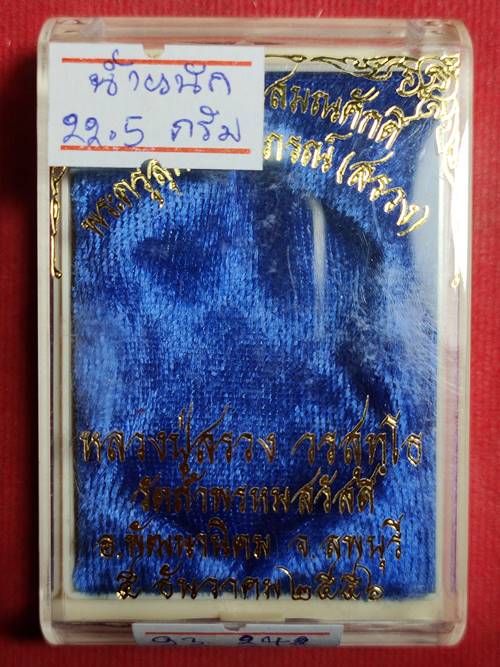 น้ำหนัก
22.5 กรัม
สมณศักดิ์
พระครูสุ ภรณ์ (สรวง)
หลวงปู่สรวง วรสุทฺโธ
วัดถ้ำพรหมสวัสดิ์
อ.พัฒนานิคม จ.ลพบุรี
๕ ธันวาคม ๒๕๕๖